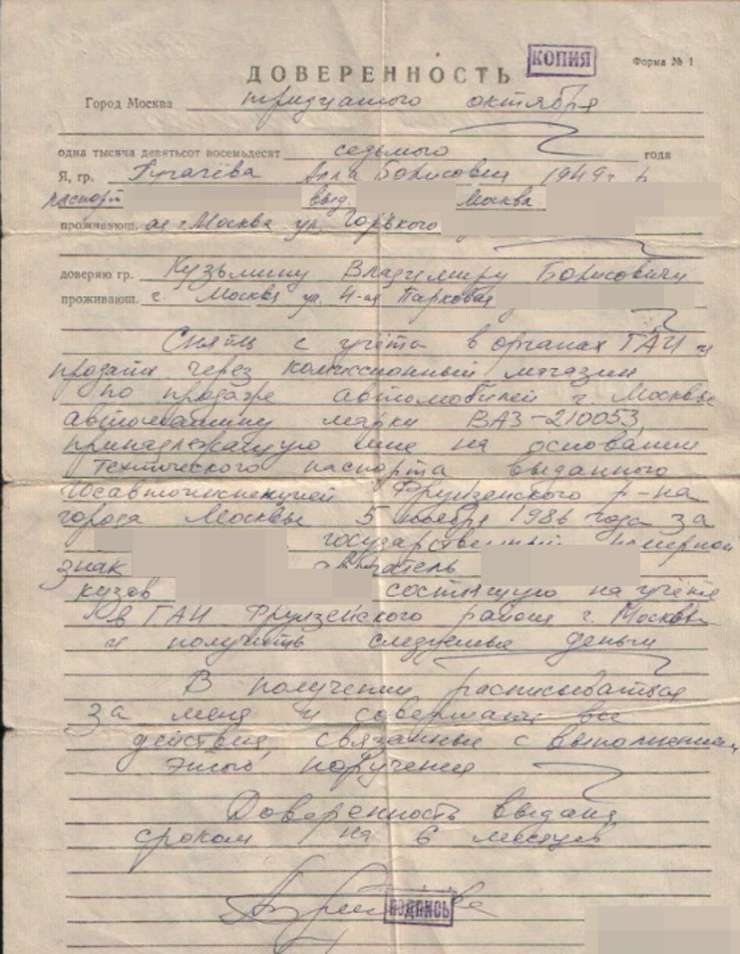 КОПИЯ
Форма № 1
ДОВЕРЕННОСТЬ
Город Москва тридцатого октября
одна тысяча девятьсот восемьдесят седьмого года
Я, гр. Пугачёва Алла Борисовна 1949 г.
паспорт выд. Москва
проживающ. ая г. Москва ул. Горького
доверяю гр. Кузьмину Владимиру Борисовичу
проживающ. г. Москва ул. 4-ая Парковая
Снять с учёта в органах ГАИ и
продать через комиссионный магазин
по продаже автомобилей г. Москвы
автомашину марки ВАЗ-210053,
принадлежащую мне на основании
технического паспорта выданного
Госавтоинспекцией Фрунзенского р-на
города Москвы 5 ноября 1986 года за
государственный номерной
знак двигатель
кузов состоящую на учёте
в ГАИ Фрунзенского района г. Москвы
и получить следуемые деньги
В получении расписываться
за меня и совершать все
действия, связанные с выполнением
этого поручения
Доверенность выдана
сроком на 6 месяцев
ПОДПИСЬ